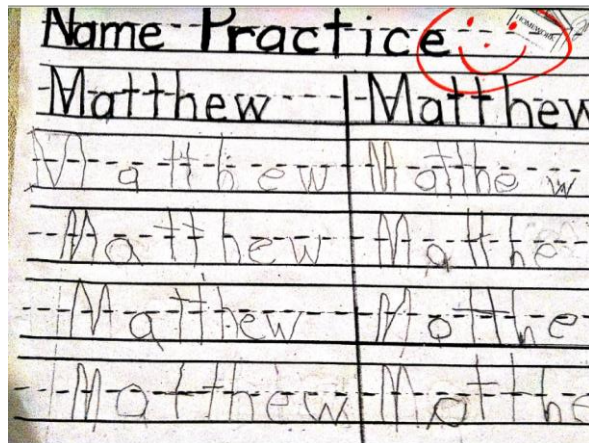 Name Practice HOMEWORK
Matthew Matthew
Matthew Mathew
Matthew Matthe
Matthew Motthe
Matthew Motthe